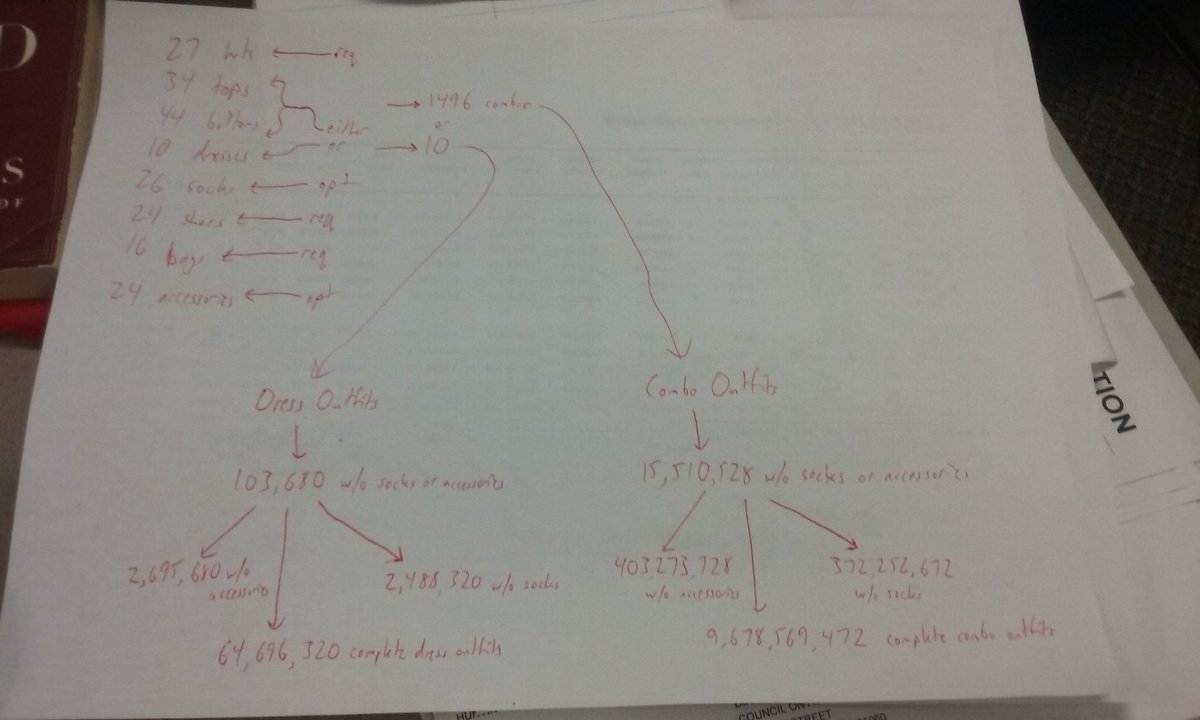 27 hats ← req
34 tops
44 bottoms
either
→ 1496 combos
or
10 dresses ← or → 10
26 socks ← opt
24 shoes ← req
16 bags ← req
24 accessories ← opt
Dress Outfits
Combo Outfits
103,680 w/o socks or accessories
15,510,528 w/o socks or accessories
2,695,680 w/o
accessories
2,488,320 w/o socks
403,273,728
w/o accessories
372,252,672
w/o socks
64,696,320 complete dress outfits
9,678,569,472 complete combo outfits
D
S
DF
TION
COUNCIL ON
STREET